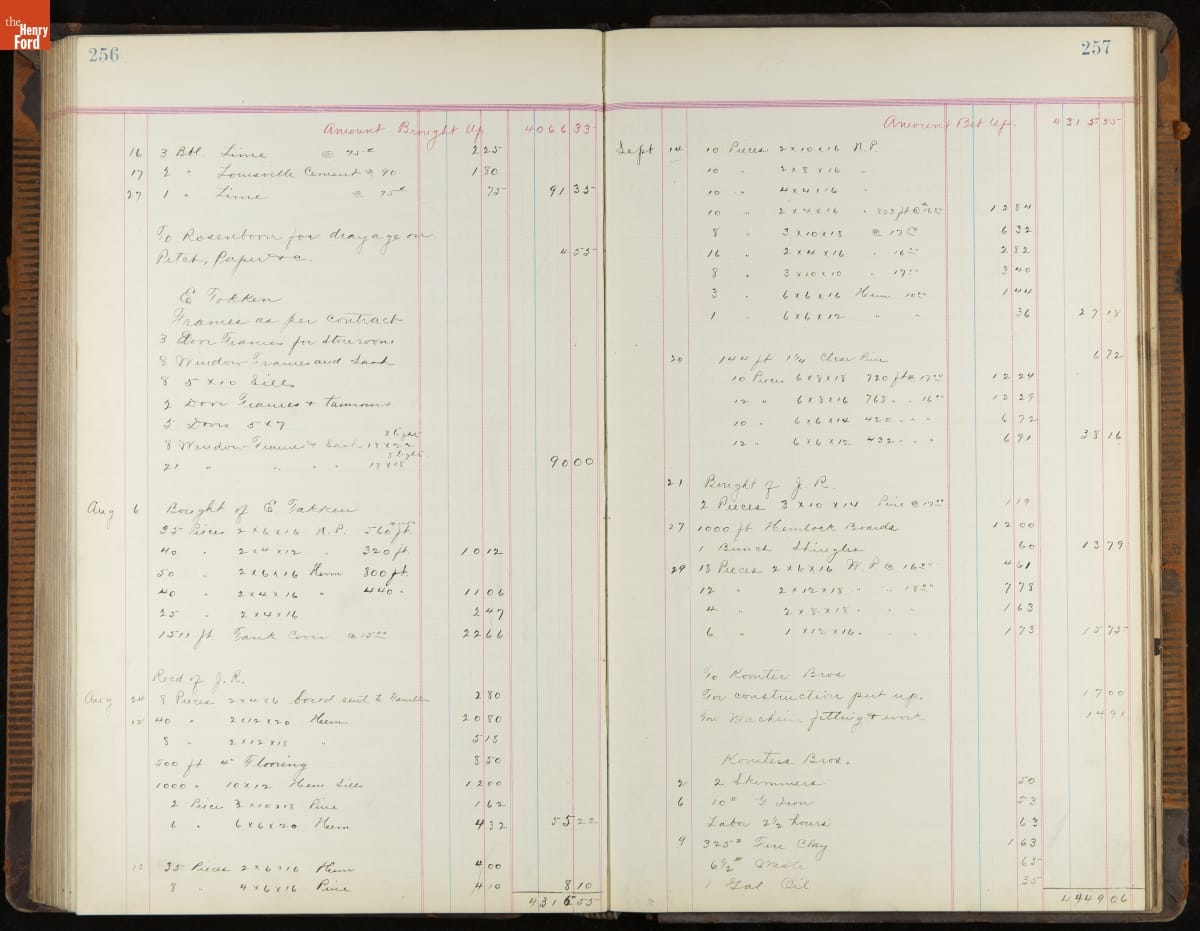 the
Henry
Ford
256
Amount Brought Up 4066 33
16 3 Bbl. Lime @ 75¢ 2 25
17 2 " Louisville Cement @ 90 1 80
27 1 " Lime @ 75¢ 75 91 35
To Rosenboom for drayage on
Pitch, Paper &c. 4 55
E Takken
Frames as per contract
3 Door Frames for Storerooms
8 Window Frames and Sash
8 5 x 10 Sills
2 Door Frames &
5 Doors 5 x 7
8 Window Frames & Sash 18 x 22 8 light
21 " " " " 18 x 18 8 light 90 00
Aug 6 Bought of E Takken
35 Pieces 2 x 6 x 16 N.P. 560 ft.
40 " 2 x 4 x 12 " 320 ft. 10 12
50 " 2 x 6 x 16 Hem 800 ft.
40 " 2 x 4 x 16 " 440 " 11 06
25 " 2 x 4 x 16 2 47
1511 ft Tank Cover @ 15.00 22 66
Recd of J. R.
Aug 24 8 Pieces 2 x 4 x 6 bored sent to Hamilton 2 80
12 40 " 2 x 12 x 20 Hem. 20 80
8 " 2 x 12 x 18 " 5 18
500 ft 4" Flooring 8 50
1000 " 10 x 12 Hem. Sills 12 00
2 Pieces 3 x 10 x 18 Pine 1 62
6 " 6 x 6 x 20 Hem 4 32 55 22
13 35 Pieces 2 x 6 x 16 Hem 4 00
8 " 4 x 6 x 16 Pine 4 10 8 10
4315 55
257
Amount Bct Up. 4315 55
Sept 14 10 Pieces 2 x 10 x 16 N.P.
10 " 2 x 8 x 16 "
10 " 4 x 4 x 16 "
10 " 2 x 4 x 16 " 803 ft @ 16.00 12 84
8 " 3 x 10 x 18 @ 17.00 6 32
16 " 2 x 4 x 16 " 16.00 2 82
8 " 3 x 10 x 10 " 17.00 3 40
3 " 6 x 6 x 16 Hem 10.00 1 44
1 " 6 x 6 x 12 " " 36 27 18
20 144 ft 1 1/4 Clear Pine 6 72
10 Pieces 6 x 8 x 18 720 ft @ 17.00 12 24
12 " 6 x 8 x 16 768 " " 16.00 12 29
10 " 6 x 6 x 14 420 " " " 6 72
12 " 6 x 6 x 12 432 " " " 6 91 38 16
21 Bought of J. R.
2 Pieces 3 x 10 x 14 Pine @ 17.00 1 19
27 1000 ft Hemlock Boards 12 00
1 Bunch Shingles 60 13 79
29 18 Pieces 2 x 6 x 16 W.P @ 16.00 4 61
12 " 2 x 12 x 18 " " 18.00 7 78
4 " 2 x 8 x 18 " " " 1 63
6 " 1 x 12 x 16 " " " 1 73 15 75
To Komter Bros
For construction put up. 17 00
For Machine fitting & work 14 91
Komters Bros.
2 2 Skimmers 50
6 10# G Iron 53
Labor 2 1/2 hours 63
9 325# Fire Clay 1 63
6 1/2# Waste 65
1 Gal Oil 35
4449 06